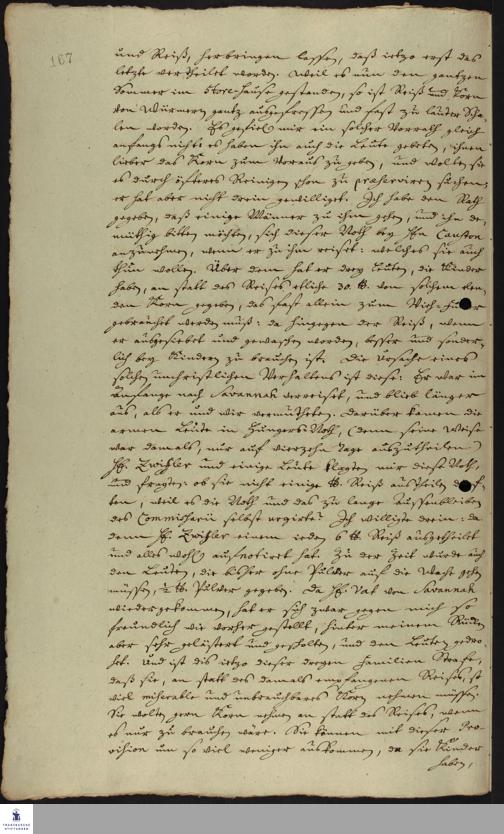 167
und Reiß, herbringen lassen, daß ietzo erst das
letzte vertheilet worden. Weil es nun den gantzen
Sommer im Store-Hause gestanden, so ist Reiß und Korn
von Würmern gantz ausgefressen und fast zu lauter Scha-
len worden. Es gefiel mir ein solcher Vorrath gleich
anfangs nicht: es haben ihn auch die Leute gebeten, ihnen
lieber das Korn zum Voraus zu geben, und wolten sie
es durch öfteres Reinigen schon zu praeserviren suchen;
er hat aber nicht drein gewilliget. Ich habe den Rath
gegeben, daß einige Männer zu ihm gehen, und ihn de-
müthig bitten möchten, sich dieser Noth bey Hn Causton
anzunehmen, wenn er zu ihm reiset: welches sie auch
thun wollen. Über dem hat er drey Leuten, die Kinder
haben, an statt des Reises etliche 30. lb. von solchem
dem Korn gegeben, das fast allein zum Vieh-
gebraucht werden muß: da hingegen der Reiß, wenn
er ausgesiebet und gewaschen worden, besser und sonder-
lich bey Kindern zu brauchen ist. Die Ursache eines
solchen unchristlichen Verhaltens ist diese: Er war im
Anfange nach Savannah verreiset, und blieb länger
aus, als er und wir vermutheten. Darüber kamen die
armen Leute in Hungers-Noth, (denn seine Weise
war damals, nur auf vierzehn Tage auszutheilen)
H. Zwifler und einige Leute klagten mir diese Noth,
und fragten: ob sie nicht einige lb. Reiß austheilen
ten, weil es die Noth und das zu lange Aussenbleiben
des Commissarii selbst urgirte? Ich willigte drein: da
denn H. Zwifler einem ieden 6 lb. Reiß ausgetheilt
und alles wohl aufnotiret hat. Zu der Zeit wurde auch
den Leuten, die bisher ohne Pulver auf die Wache gehen
müssen, ½ lb. Pulver gegeben. Da H. Vat von Savannah
wiedergekommen, hat er sich zwar gegen mich so
freundlich wie vorher gestellt, hinter meinem Rücken
aber sehr gelästert und gescholten, und den Leuten gedro-
het. Und ist dis ietzo dieser dreyen Familien Strafe,
daß sie, an statt des damals empfangenen Reises, ist
viel miserable und unbrauchbares Korn nehmen müssen.
Sie wolten gern Korn nehmen an statt des Reises, wenn
es nur zu brauchen wäre. Sie können mit dieser Pro-
vision um so viel weniger auskommen, da sie Kinder
haben,
FRANCKESCHE
STIFTUNGEN